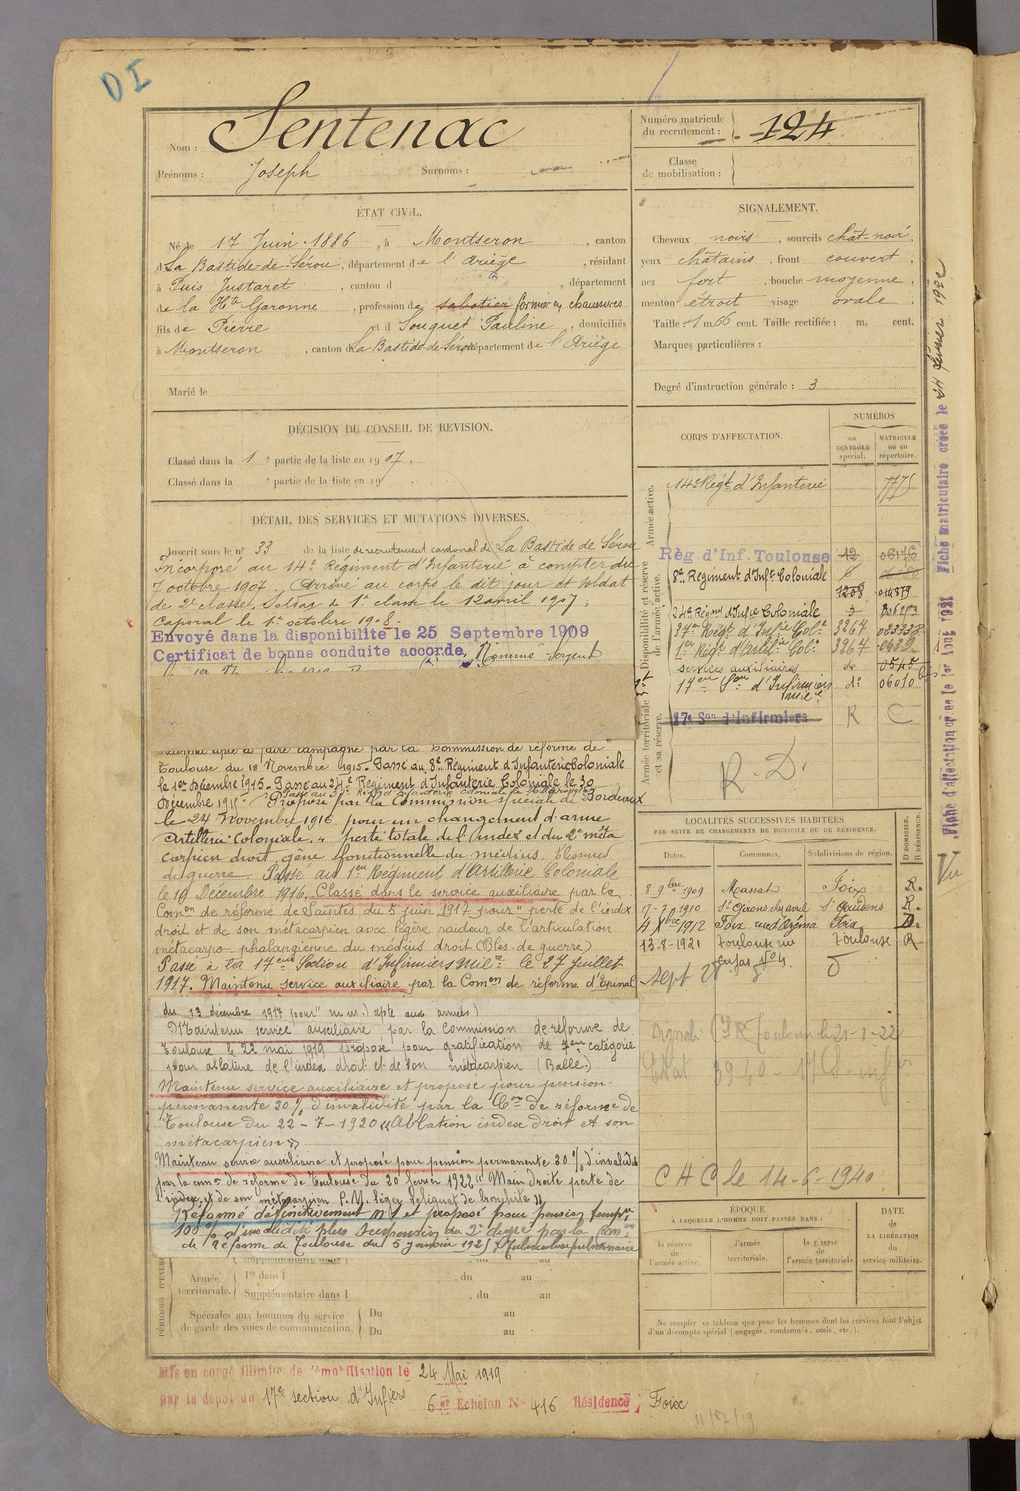 DI
Nom : Sentenac
Prénoms : Joseph Surnoms :
Numéro matricule
du recrutement : 124
Classe
de mobilisation :
ÉTAT CIVIL.
Né le 17 Juin 1886, à Montseron, canton
d La Bastide-de-Sérou, département de l'Ariège, résidant
à Puis Justaret, canton d , département
de la Hte Garonne, profession de sabotier formier en chaussures
fils de Pierre et d Souquet Pauline, domiciliés
à Montseron, canton d La Bastide de Sérou département de l'Ariège
Marié le
SIGNALEMENT.
Cheveux noirs, sourcils chât-noir,
yeux châtains, front couvert,
nez fort, bouche moyenne,
menton étroit visage ovale.
Taille : 1 m. 66 cent. Taille rectifiée : m. cent.
Marques particulières :
Degré d'instruction générale : 3
DÉCISION DU CONSEIL DE REVISION.
Classé dans la 1 e partie de la liste en 1907.
Classé dans la e partie de la liste en 19
DÉTAIL DES SERVICES ET MUTATIONS DIVERSES.
Inscrit sous le n° 33 de la liste de recrutement cantonal de La Bastide de Sérou
Incorporé au 14e Régiment d'Infanterie à compter du
7 octobre 1907. Arrivé au corps le dit jour et soldat
de 2e classe, Soldat de 1e classe le 12 avril 1907,
Caporal le 1er octobre 1908.
Envoyé dans la disponibilité le 25 Septembre 1909
Certificat de bonne conduite accordé. Nommé Sergent
à faire campagne par la Commission de réforme de
Toulouse du 18 Novembre 1915. Passé au 8e Régiment d'Infanterie Coloniale
le 1er Décembre 1915. Passé au 24e Régiment d'Infanterie Coloniale le 30
Décembre 1915. Proposé par la Commission spéciale de Bordeaux
le 24 Novembre 1916 pour un changement d'arme
Artillerie Coloniale. " perte totale de l'index et du 2e méta
carpien droit, gêne fonctionnelle du médius. Blessure
de guerre Passé au 1er Régiment d'Artillerie Coloniale
le 19 Décembre 1916. Classé dans le service auxiliaire par la
Comon de réforme de Saintes du 5 juin 1917 pour " perte de l'index
droit et de son métacarpien avec légère raideur de l'articulation
métacarpo-phalangienne du médius droit (Bles. de guerre)
Passé à la 17eme Section d'Infirmiers Milre le 27 Juillet
1917. Maintenu service auxiliaire par la Comon de réforme d'Epinal
du 13 décembre 1917 pour " m. m.) apte aux armées)
Maintenu service auxiliaire par la Commission de réforme de
Toulouse le 22 mai 1919 proposé pour gratification de 7em catégorie
pour ablation de l'index droit et de son métacarpien (Balle.)
Maintenu service auxiliaire et proposé pour pension
permanente 20% d'invalidité par la Con de réforme de
Toulouse du 22-7-1920 " Ablation index droit et son
métacarpien "
Maintenu service auxiliaire et proposé pour pension permanente 30% d'invalidité
par la comon de réforme de Toulouse du 20 février 1922 " Main droite perte de
l'index et de son métacarpien P.V. léger reliquat de bronchite "
Réformé définitivement N°1 et proposé pour pension tempre
100% d'invalidité plus suspension du 2e degré par la Comon
de Réforme de Toulouse du 5 janvier 1925 Tuberculose pulmonaire
CORPS D'AFFECTATION.
NUMÉROS
au CONTRÔLE spécial.
MATRICULE ou au répertoire.
Armée active.
14e Régt d'Infanterie 7775
Disponibilité et réserve de l'armée active.
Rég. d'Inf. Toulouse 12 06176
8e Régiment d'Infie Coloniale 6
1208 014379
24e Régiment d'Infie Coloniale
37me Régt d'Infie Cole 3267 02333
1er Régt d'Artie Cole 3267
services auxiliaires de 0545
17eme Son d'Infirmiers do 06010
Armée territoriale et sa réserve.
17e Son d'Infirmiers R C
R. D.
LOCALITÉS SUCCESSIVES HABITÉES
PAR SUITE DE CHANGEMENTS DE DOMICILE OU DE RÉSIDENCE.
Dates. Communes. Subdivisions de région. D DOMICILE. R RÉSIDENCE.
8 9bre 1909 Massat Foix R.
17-7-1910 St Girons St Gaudens R.
4 Xbre 1912 Foix Foix D.
13-8-1921 Toulouse rue Toulouse R
Cujas No 4
C H C le 14-6-1940.
ÉPOQUE
À LAQUELLE L'HOMME DOIT PASSER DANS :
la réserve de l'armée active.
l'armée territoriale.
la réserve de l'armée territoriale
DATE de LA LIBÉRATION du service militaire.
Ne remplir ce tableau que pour les hommes dont les services font l'objet
d'un décompte spécial (engagés, condamnés, omis, etc.).
Armée territoriale.
1re dans l , du au
Supplémentaire dans l , du au
Spéciales aux hommes du service
de garde des voies de communication.
Du au
Du au
Mis en congé illimité de démobilisation le 24 Mai 1919
par le dépôt du 17e section d'Infiers 6 e Echelon No 416 Résidence Foix
Fiche d'affectation créée le 1er Juin 1921 Fiche matriculaire créée le 24 février 1922
Vu